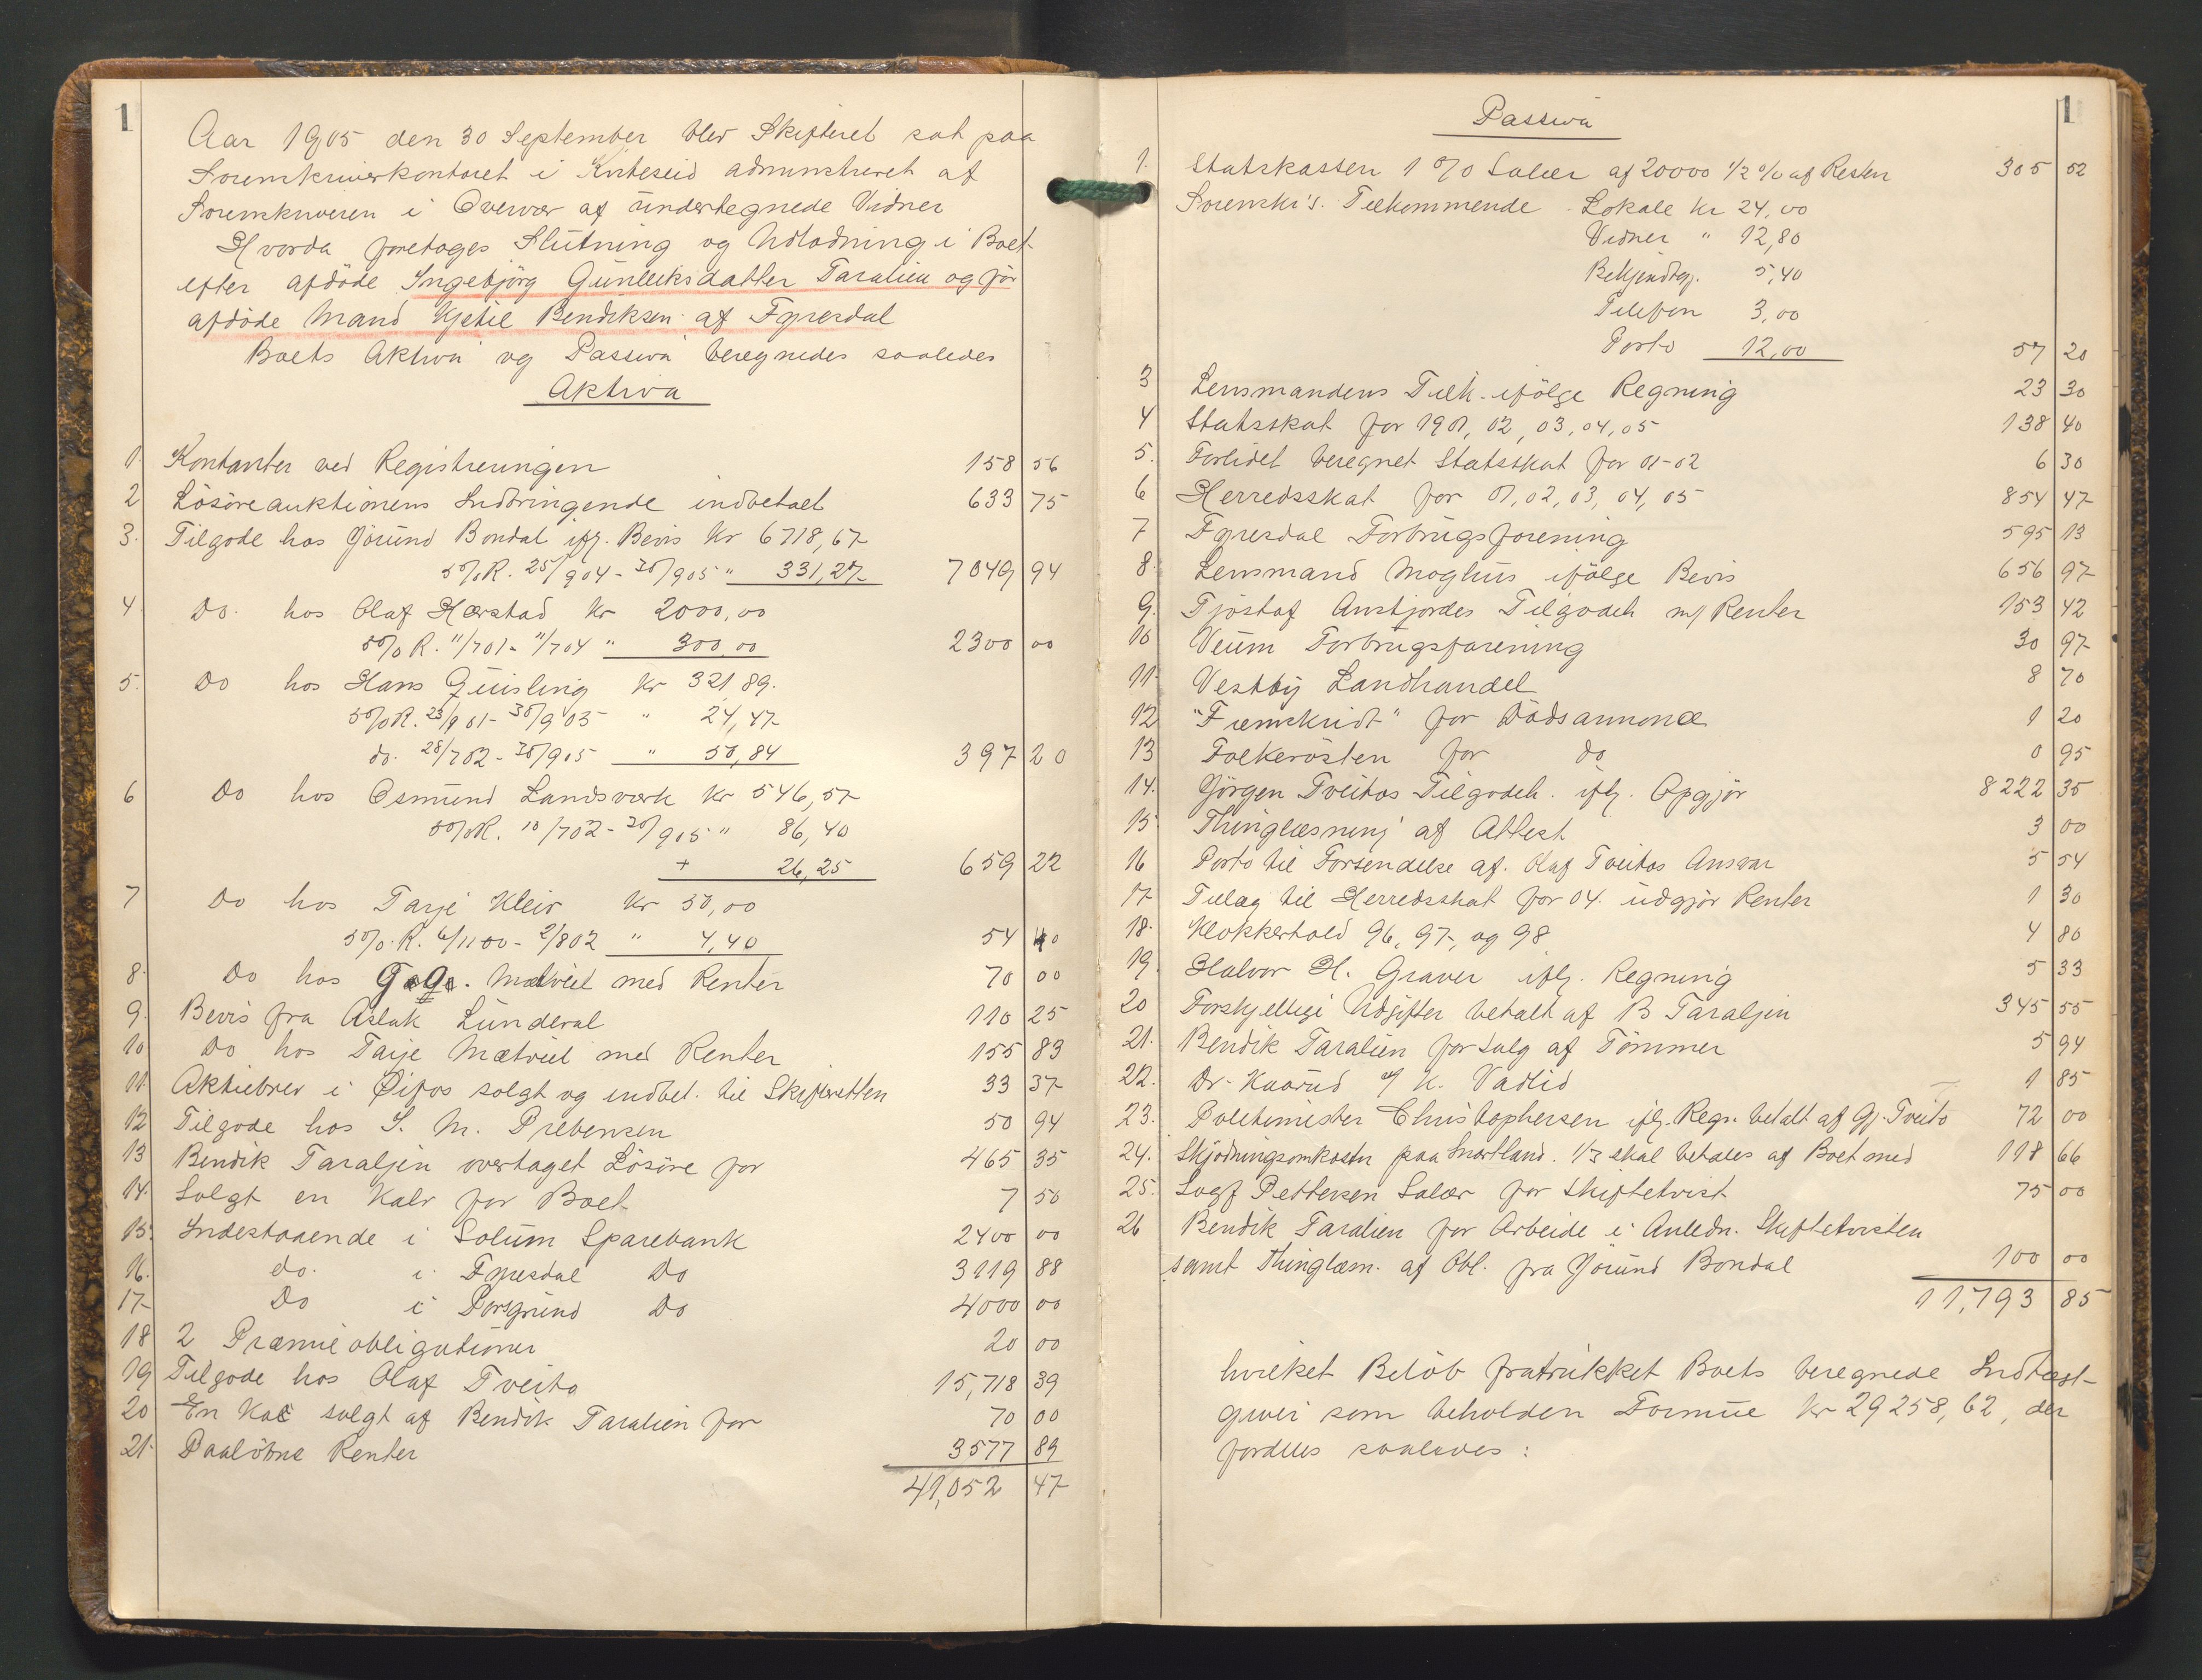 1
Aar 1905 den 30 September blev Skifteret sat paa
Sorenskriverkontoret i Kviteseid administreret af
Sorenskriveren i Overvær af undertegnede Vidner
Hvorda foretoges Slutning og Udlodning i Boet
efter afdöde Ingebjörg Gunleiksdatter Taralien og för
afdöde Mand Kjetil Bendiksen af Fyresdal
Boets Aktiva og Passiva beregnedes saaledes
Aktiva
1. Kontanter ved Registreringen 158 56
2 Lösöreauktionens Indbringende indbetalt 633 75
3. Tilgode hos Jörund Bondal iflg. Bevis Kr 6718,67
5% R. 25/9 04 - 30/9 05 " 331,27 7049 94
4 Do. hos Olaf Hærstad Kr 2000,00
5% R. 11/7 01 - 11/7 04 " 300,00 2300 00
5. Do hos Hans Quisling Kr 321,89.
5% R. 23/9 01 - 30/9 03 " 24,47
do. 28/7 02 - 30/9 05 " 50,84 397 20
6 Do hos Osmund Landsværk Kr 546,57
5% R. 10/7 02 - 30/9 05 " 86,40
+ 26,25 659 22
7 Do hos Tarje Kleiv Kr 50,00
5% R. 6/11 00 - 2/8 02 " 4,40 54 40
8. Do hos G. G. Mælveit med Renter 70 00
9. Bevis fra Aslak Lunderal 110 25
10 Do hos Tarje Mætveit med Renter 155 83
11. Aktiebrev i Øifos solgt og indbet. til Skifteretten 33 37
12 Tilgode hos S. M. Prebensen 50 94
13 Bendik Taraljen overtaget Lösöre for 465 35
14. Solgt en Kalv for Boet 7 50
15. Indestaaende i Solum Sparebank 2400 00
16. do. i Fyresdal Do 3119 88
17 Do i Porsgrund Do 4000 00
18 2 Præmieobligationer 20 00
19 Tilgode hos Olaf Tveito 15,718 39
20 En Ko solgt af Bendik Taralien for 70 00
21. Paalöbne Renter 3577 89
41,052 47
1
Passiva
1. Statskassen 1 % Salær af 20000 1/2 % af Resten 305 52
Sorenskr's. Tilkommende Lokale Kr 24,00
Vidner " 12,80
Bekjendtgj. 5,40
Telefon 3,00
Porto 12,00 57 20
3 Lensmandens Tilk. ifölge Regning 23 30
4 Statsskat for 1901, 02, 03, 04, 05 138 40
5. Forlidet beregnet Statsskat for 01-02 6 30
6 Herredsskat for 01, 02, 03, 04, 05 854 47
7 Fyresdal Forbrugsforening 595 13
8. Lensmand Moghus ifölge Bevis 656 97
9. Tjöstof Austjordes Tilgodeh m/ Renter 153 42
10 Veum Forbrugsforening 30 97
11. Vestby Landhandel 8 70
12 "Fremskridt" for Dödsannonce 1 20
13 Folkerösten for do 0 95
14. Jörgen Tveitos Tilgodeh. iflg. Opgjör 8222 35
15 Thinglæsning af Attest 3 00
16 Porto til Forsendelse af. Olaf Tveitos Ansvar 5 54
17 Tillæg til Herredsskat for 04. udgjör Renter 1 30
18. Klokkertold 96, 97, og 98 4 80
19. Halvor H. Graver iflg. Regning 5 33
20 Forskjellige Udgifter betalt af B Taraljen 345 55
21. Bendik Taralien for Salg af Tömmer 5 94
22. Dr. Kaarud v/ K. Vadlid 1 85
23. Politimester Christophersen iflg. Regn. betalt af Gj. Tveito 72 00
24. Skjödningsomkostn paa Snartland. 1/3 skal betales af Boet med 118 66
25. Sagf Pettersen Salær for Skiftetvist 75 00
26 Bendik Taralien for Arbeide i Anledn. Skiftetvisten
samt Thinglæsn. af Obl. fra Jörund Bondal 100 00
11,793 85
hvilket Belöb fratrukket Boets beregnede Indtægt
giver som beholden Formue Kr 29 258,62, der
fordeles saaledes: